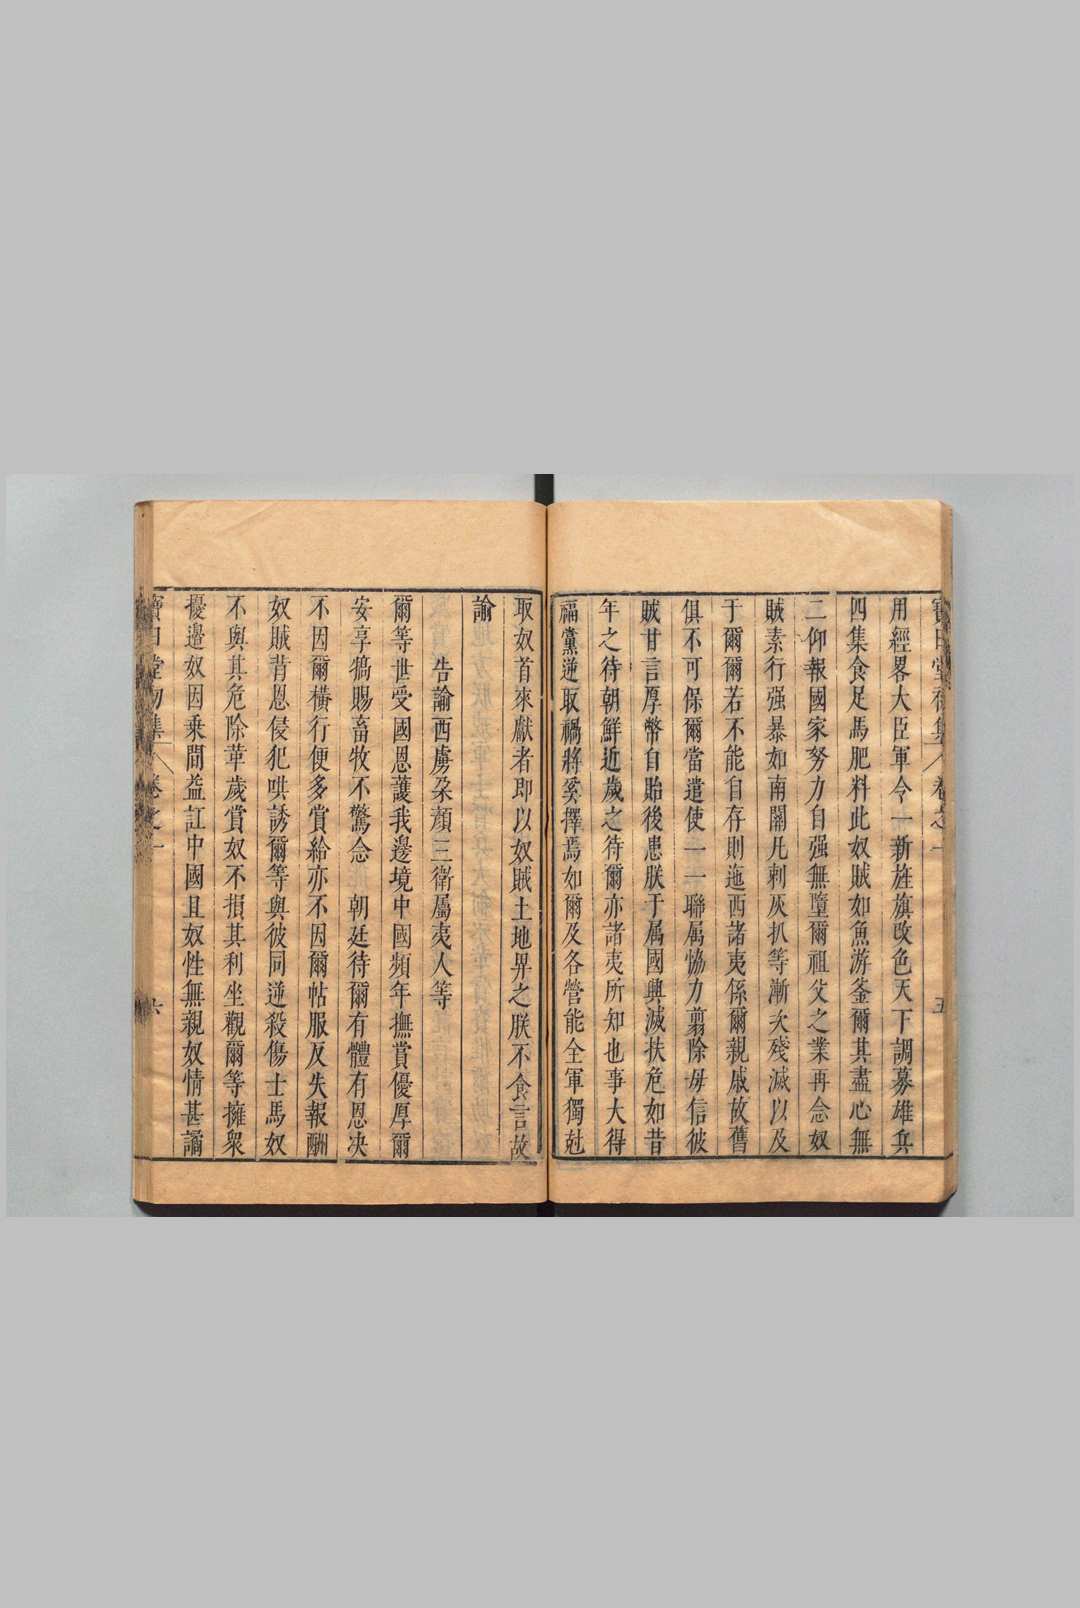 用經畧大臣軍令一新旌旗改色天下調募雄兵
四集食足馬肥料此奴賊如魚游釜爾其盡心無
二仰報國家努力自强無墮爾祖父之業再念奴
賊素行强暴如南關兀剌灰扒等漸次殘滅以及
于爾爾若不能自存則迤西諸夷係爾親戚故舊
俱不可保爾當遣使一一聯属恊力翦除毋信彼
賊甘言厚幣自貽後患朕于属國興滅扶危如昔
年之待朝鮮近歲之待爾亦諸夷所知也事大得
福黨逆取禍將奚擇焉如爾及各營能全軍獨尅
取奴首來獻者即以奴賊土地畀之朕不食言故
諭
告諭西虜朶顔三衛屬夷人等
爾等世受國恩護我邊境中國頻年撫賞優厚爾
安享犒賜畜牧不驚念 朝廷待爾有體有恩决
不因爾橫行便多賞給亦不因爾帖服反失報酬
奴賊背恩侵犯哄誘爾等與彼同逆殺傷士馬奴
不與其危除革歲賞奴不損其利坐觀爾等擁衆
擾邊奴因乘間益訌中國且奴性無親奴情甚譎
寶日堂初集 卷之一 六